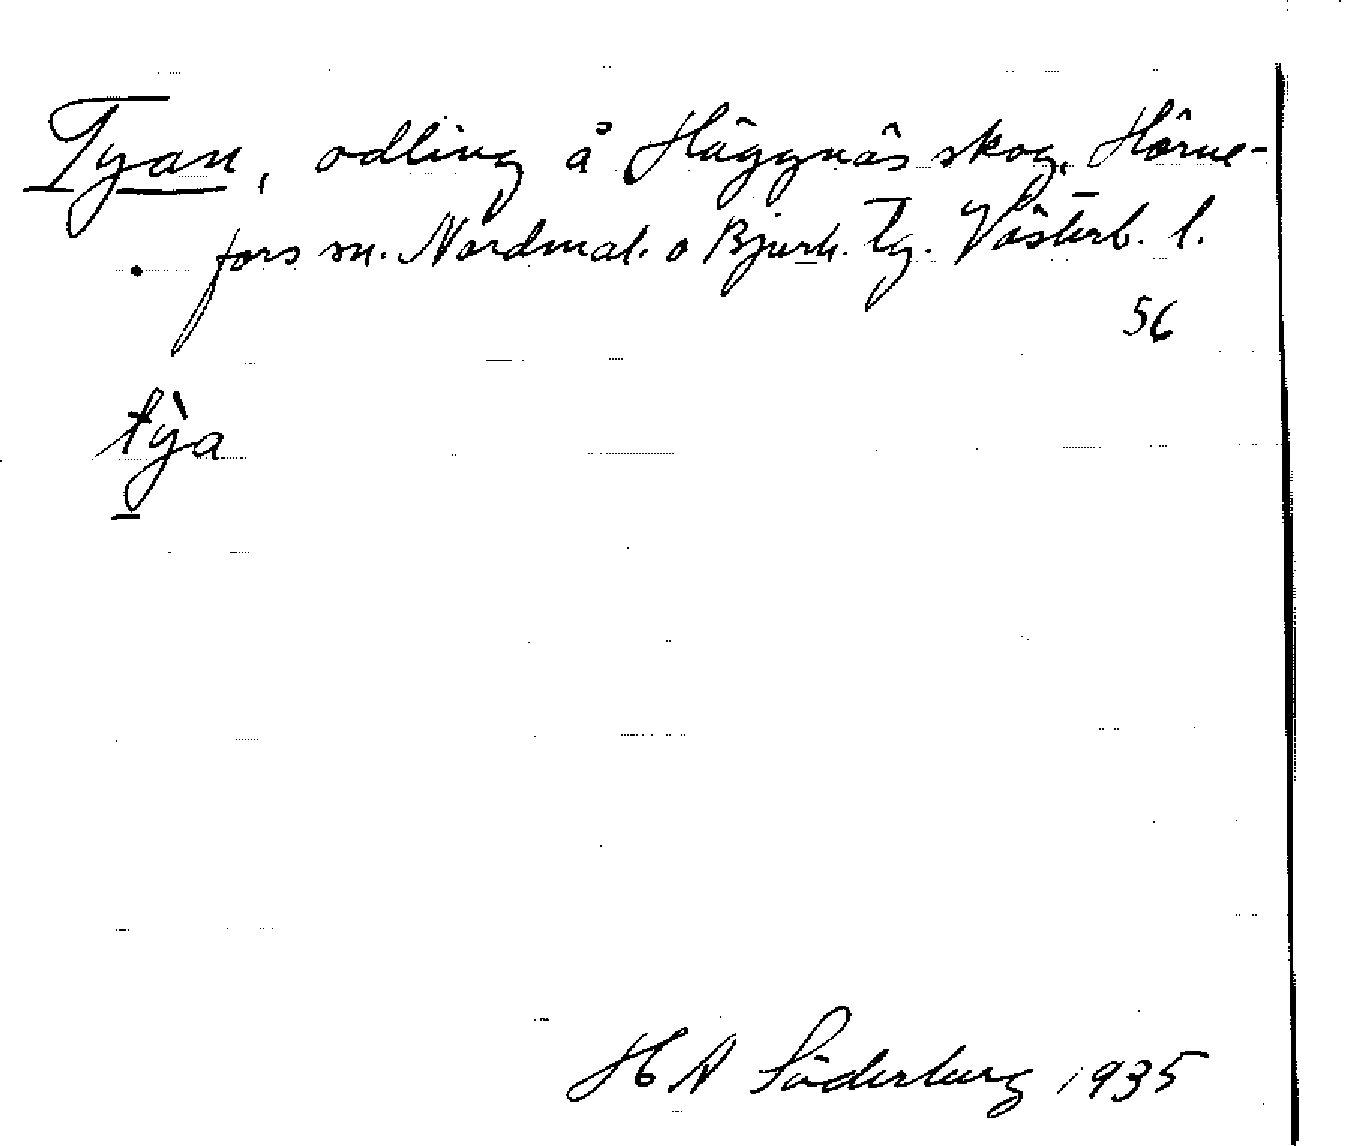 Tyan, odling å Häggnäs skog, Hörne-
fors sn. Nordmal. o Bjurh. Tg. Västerb. l.
56
tỳa
H A Söderberg 1935